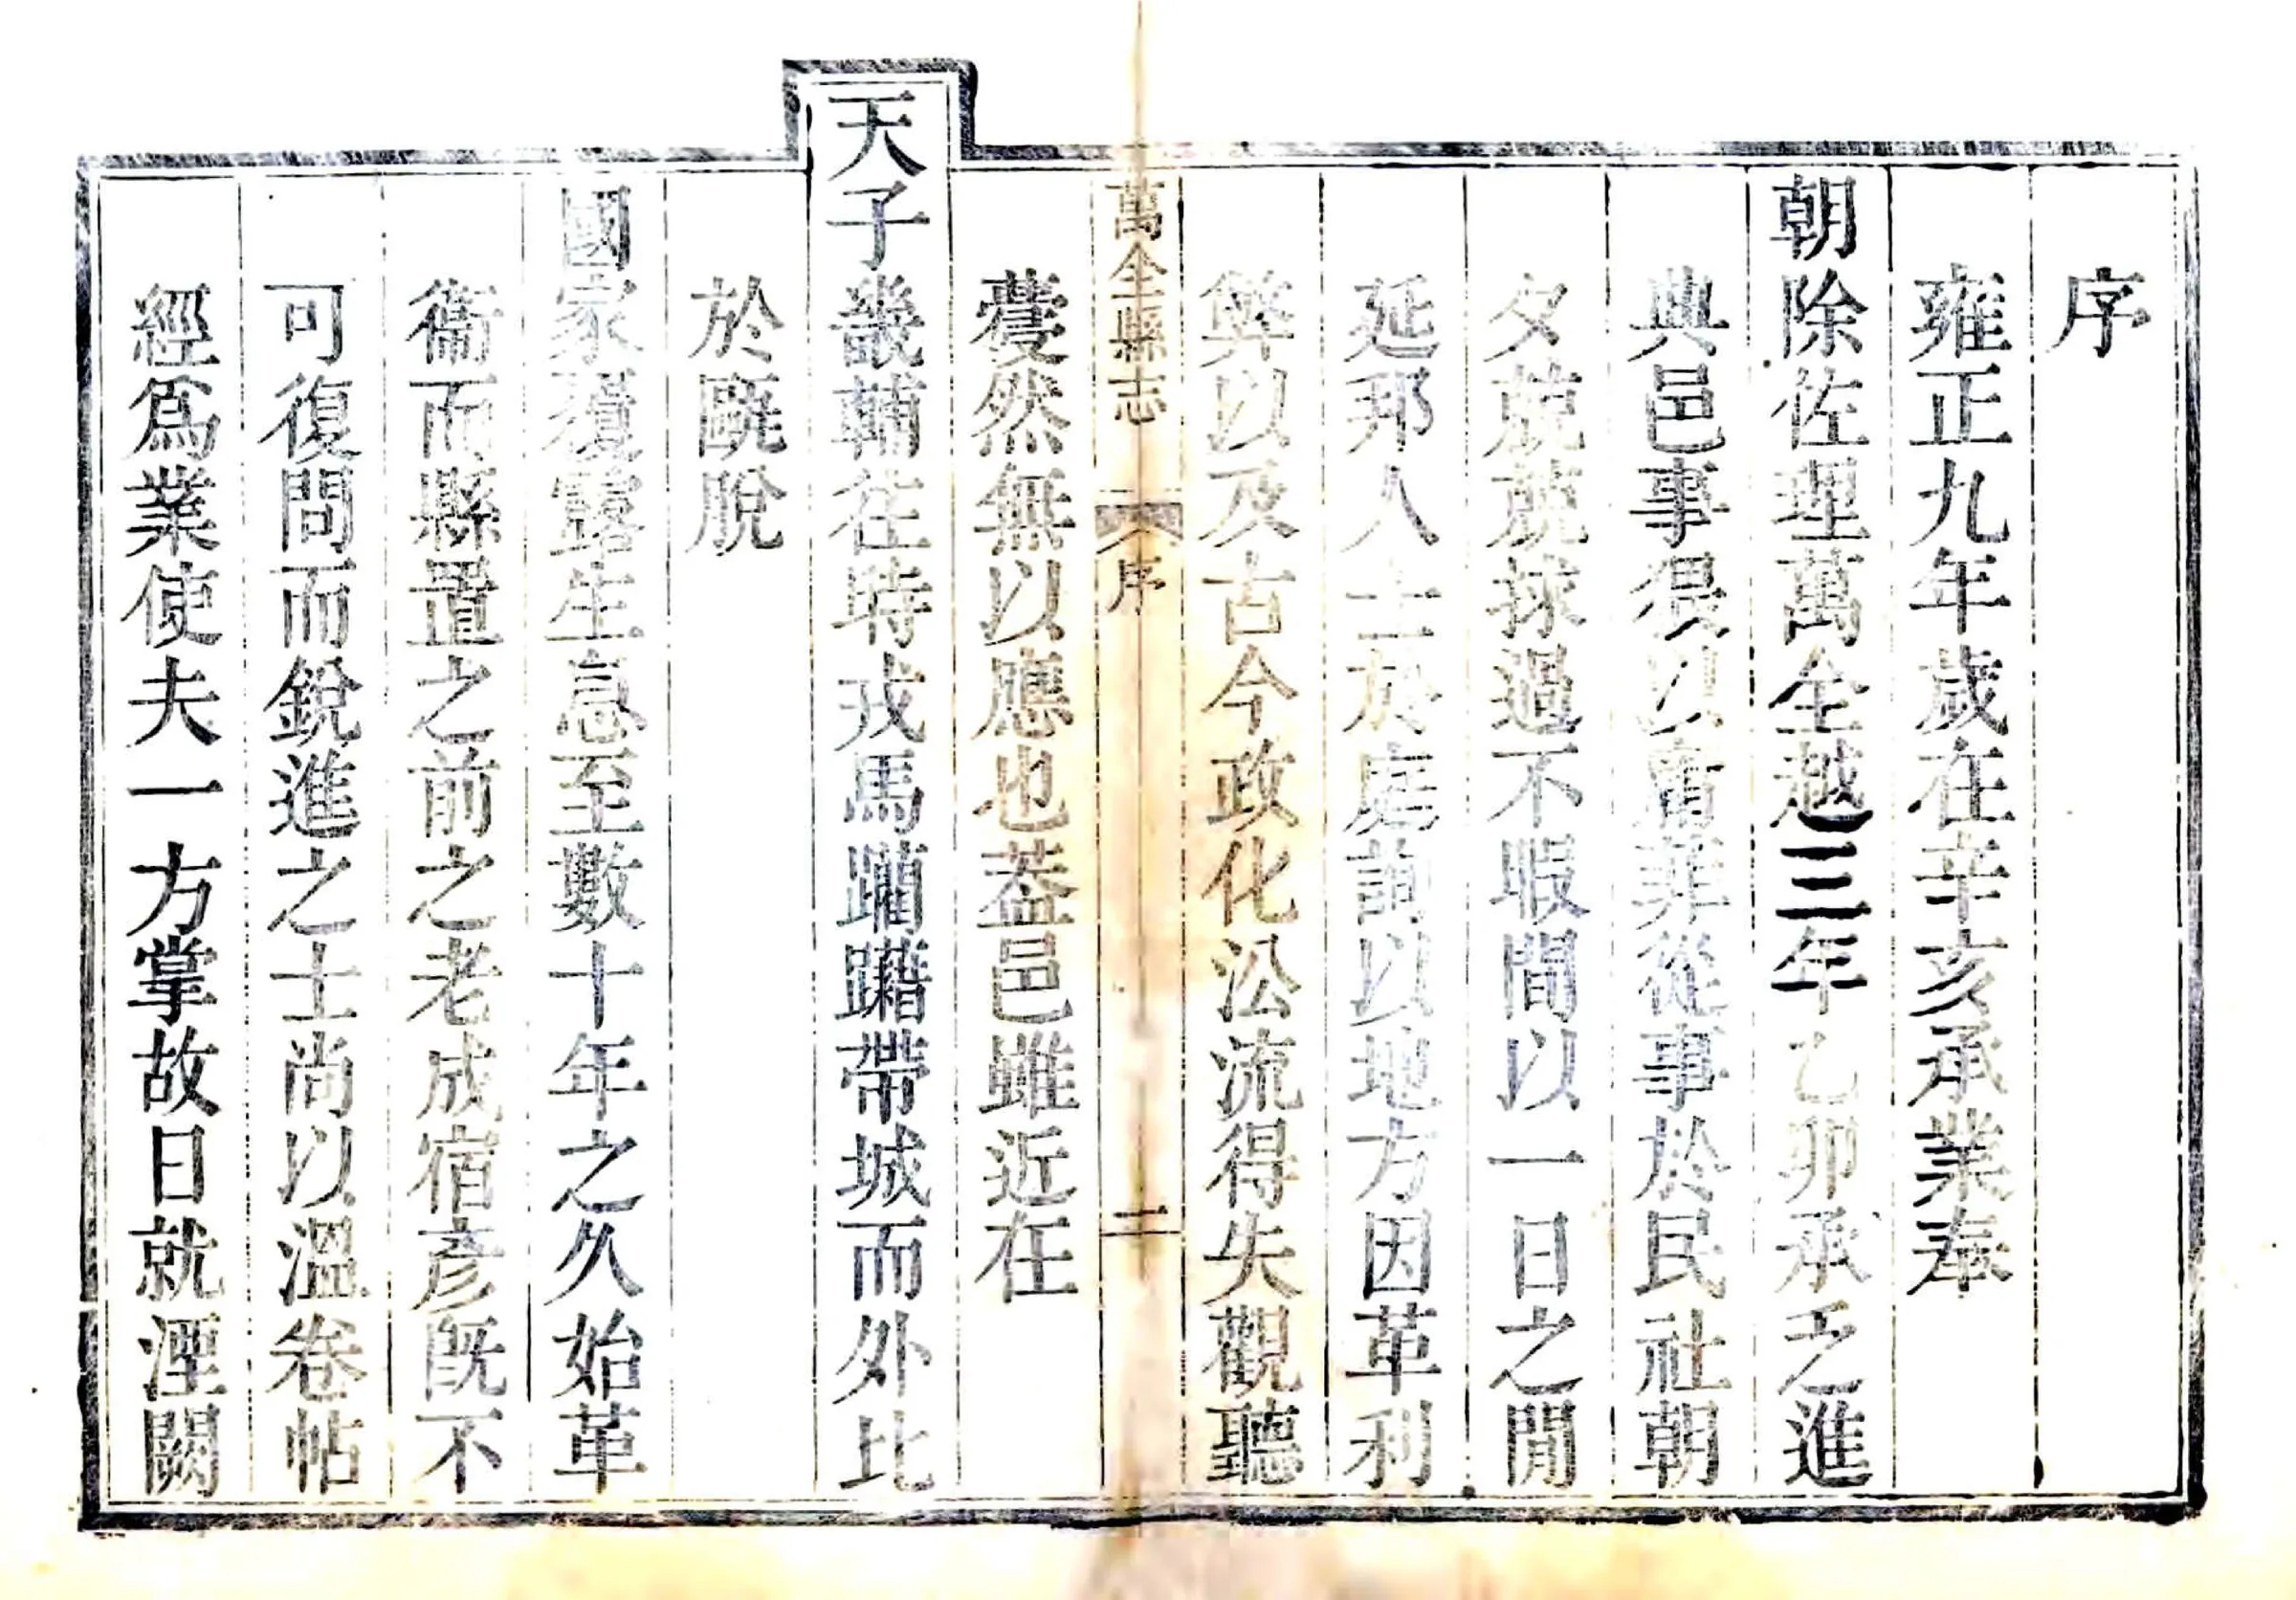 序
雍正九年歲在辛亥承業奉
朝除佐理萬全越三年乙卯承乏進
典邑事猥以菲從事於民社朝
夕兢兢捄過不暇間以一日之閒
延邦人士於庭詢以地方因革利
弊以及古今政化㳂流得失觀聽
萬全縣志
序
二
戄然無以應也葢邑雖近在
天子畿輔在時戎馬躪躤帶城而外比
於甌脫
國家覆露生息至數十年之久始革
衞而縣置之前之老成宿彥旣不
可復問而銳進之士尚以溫卷帖
經爲業使夫一方掌故日就湮闕